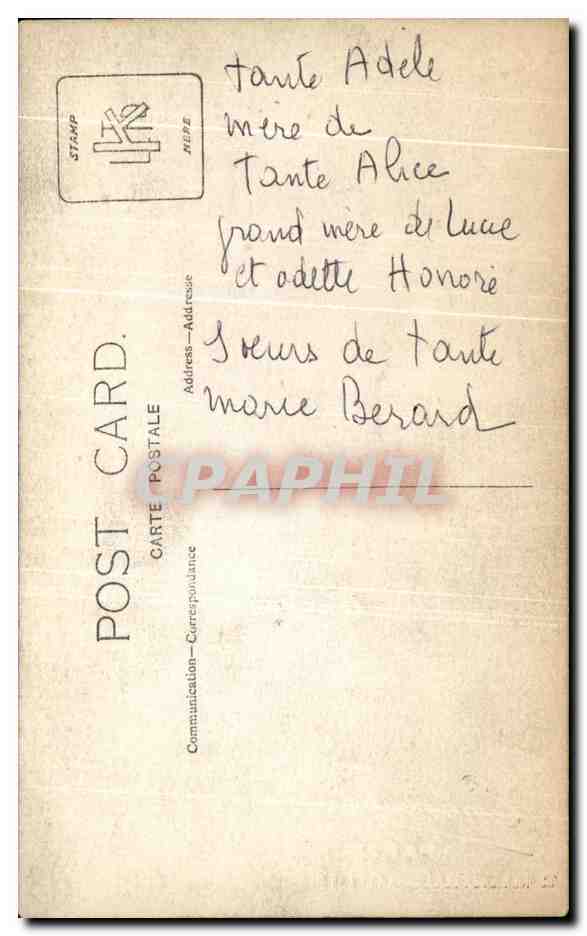 tante Adèle
mère de
Tante Alice
grand mère de Lucie
et odette Honoré
Soeurs de tante
marie Berard
STAMP
HERE
POST CARD.
CARTE POSTALE
Address—Addresse
Communication—Correspondance
CPAPHIL